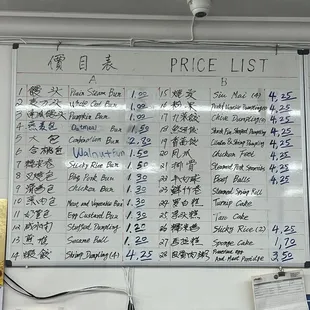 價目表 PRICE LIST
A B
1 Plain Steam Bun 1.00
2 Whole Corn Bun 1.00
3 Pumpkin Bun 1.00
4 Oatmeal Bun 1.50
5 大包 Combination Bun 2.80
6 Walnut Bun 1.50
7 糯米卷 Sticky Rice Bun 1.50
8 叉燒包 Bbq Pork Bun 1.30
9 雞包 Chicken Bun 1.30
10 菜肉包 Meat and Vegetable Bun 1.30
11 奶黃包 Egg Custard Bun 1.30
12 咸水角 Stuffed Dumpling 1.20
13 煎堆 Sesame Ball 1.20
14 蝦餃 Shrimp Dumpling (4) 4.25
15 燒賣 Siu Mai (4) 4.25
16 粉果 Pork Dumpling 4.25
17 韭菜餃 Chive Dumpling 4.25
18 Dumpling 4.25
19 Dumpling 4.25
20 鳳爪 Chicken Feet 4.25
21 排骨 Steamed Pork Spareribs 4.25
22 牛肉球 Beef Balls 4.25
23 鮮竹卷 Steamed Spring Roll
24 蘿白糕 Turnip Cake
25 Taro Cake
26 糯米雞 Sticky Rice (2) 4.25
27 馬拉糕 Sponge Cake 1.70
28 皮蛋肉粥 Preserved egg And Meat Porridge 3.50